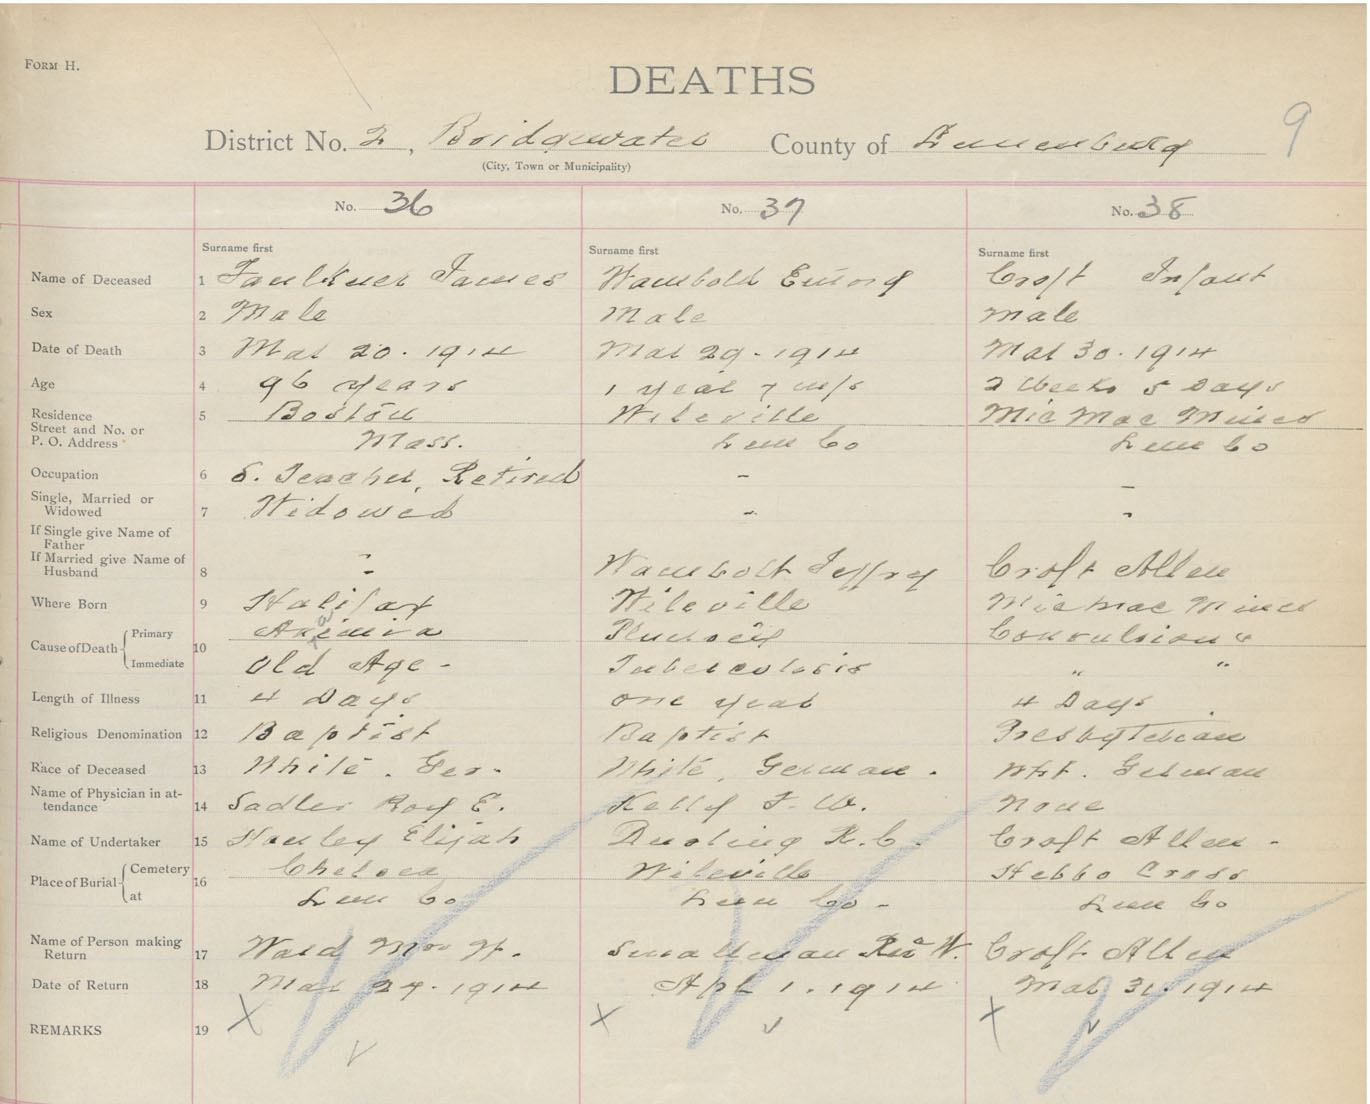 FORM H.
DEATHS
9
District No. 2, Bridgewater County of Lunenburg
(City, Town or Municipality)
No. 36 No. 37 No. 38
Surname first Surname first Surname first
Name of Deceased 1 Faulkner James Wambold Emory Croft Infant
Sex 2 Male Male Male
Date of Death 3 Mar 20. 1914 Mar 29. 1914 Mar 30. 1914
Age 4 96 years 1 year 7 m/s 2 Weeks 5 Days
Residence 5 Boston Wileville Mic Mac Mines
Street and No. or
P. O. Address Mass. Lun Co Lun Co
Occupation 6 S. Teacher, Retired - -
Single, Married or
Widowed 7 Widowed - -
If Single give Name of
Father -
If Married give Name of
Husband 8 - Wambolt Jeffry Croft Allen
Where Born 9 Halifax Wileville Mic Mac Mines
Cause of Death 10 Primary Pleurisy Convulsions
Immediate Old Age - Tuberculosis " "
Length of Illness 11 4 Days one year 4 Days
Religious Denomination 12 Baptist Baptist Presbyterian
Race of Deceased 13 White. Ger. White, German. Wht. German
Name of Physician in at-
tendance 14 Sadler Roy E. Kelly F. W. None
Name of Undertaker 15 Hanley Elijah R. C. Croft Allen -
Place of Burial 16 Cemetery Chelsea Wileville Hebbs Cross
at Lun Co Lun Co - Lun Co
Name of Person making
Return 17 Ward Mrs H. Smallman Rev W. Croft Allen
Date of Return 18 Mar 27. 1914 Apr 1. 1914 Mar 31. 1914
REMARKS 19 X X X